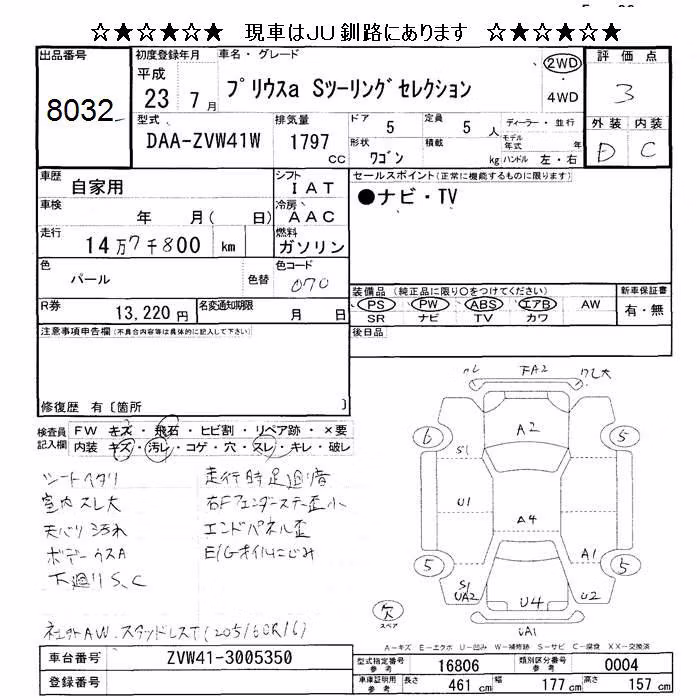 ☆★☆★☆★ 現車はJU釧路にあります ☆★☆★☆★
出品番号 8032
初度登録年月 平成 23 7月
車名・グレード プリウスa Sツーリングセレクション
2WD ・ 4WD
評価点 3
外装 内装
D C
型式 DAA-ZVW41W
排気量 1797 cc
ドア 5 定員 5 人
形状 ワゴン 積載 kg
ディーラー・並行
モデル年式 年
ハンドル 左・右
車歴 自家用
シフト IAT
車検 年 月( 日)
冷房 AAC
走行 14万7千800 km
燃料 ガソリン
色 パール 色替
色コード 070
R券 13,220円
名変通知期限 月 日
セールスポイント(正常に機能するものに限ります)
●ナビ・TV
装備品(純正品に限り○をつけてください)
PS PW ABS エアB AW
SR ナビ TV カワ
新車保証書 有・無
後日品
注意事項申告欄(不具合内容等は具体的に記入して下さい)
修復歴 有〔箇所 〕
検査員記入欄
FW キズ・飛石・ヒビ割・リペア跡・×要
内装 キズ・汚レ・コゲ・穴・スレ・キレ・破レ
シートヘタリ
走行時足廻り音
室内スレ大
右Fフェンダーステー歪小
天バリ汚れ
エンドパネル歪
ボデーウスA
E/Gオイルにじみ
下廻りS,C
社外AW.スタッドレスT(205/60R16)
FA2
ワレ大
A2
6 5
S1
U1
A4
A1
5 5
S1
UA2
U4
U2
UA1
欠
スペア
A-キズ E-エクボ U-凹み W-補修跡 S-サビ C-腐食 XX-交換済
車台番号 ZVW41-3005350
登録番号
型式指定番号 参考 16806
類別区分番号 参考 0004
車庫証明用 参考 長さ 461 cm 幅 177 cm 高さ 157 cm